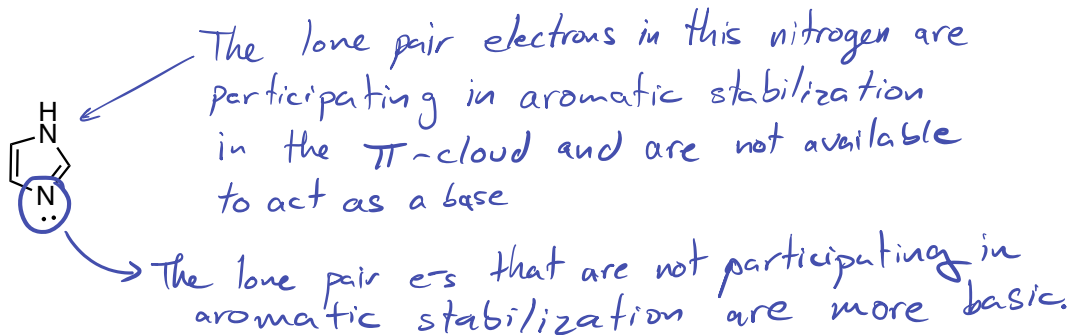 The lone pair electrons in this nitrogen are
participating in aromatic stabilization
in the π-cloud and are not available
to act as a base
H
N
N
The lone pair e-s that are not participating in
aromatic stabilization are more basic.